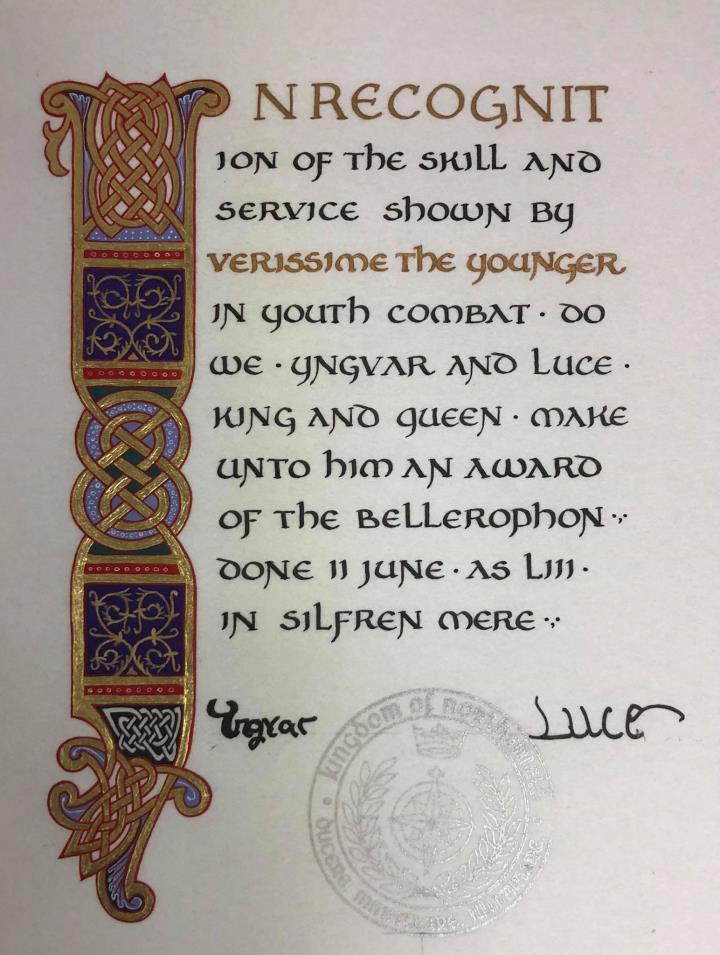 IN RECOGNIT
ION OF THE SKILL AND
SERVICE SHOWN BY
VERISSIME THE YOUNGER
IN YOUTH COMBAT · DO
WE · YNGVAR AND LUCE ·
KING AND QUEEN · MAKE
UNTO HIM AN AWARD
OF THE BELLEROPHON ·,·
DONE 11 JUNE · AS LIII ·
IN SILFREN MERE ·,·
Yngvar Luce
kingdom of